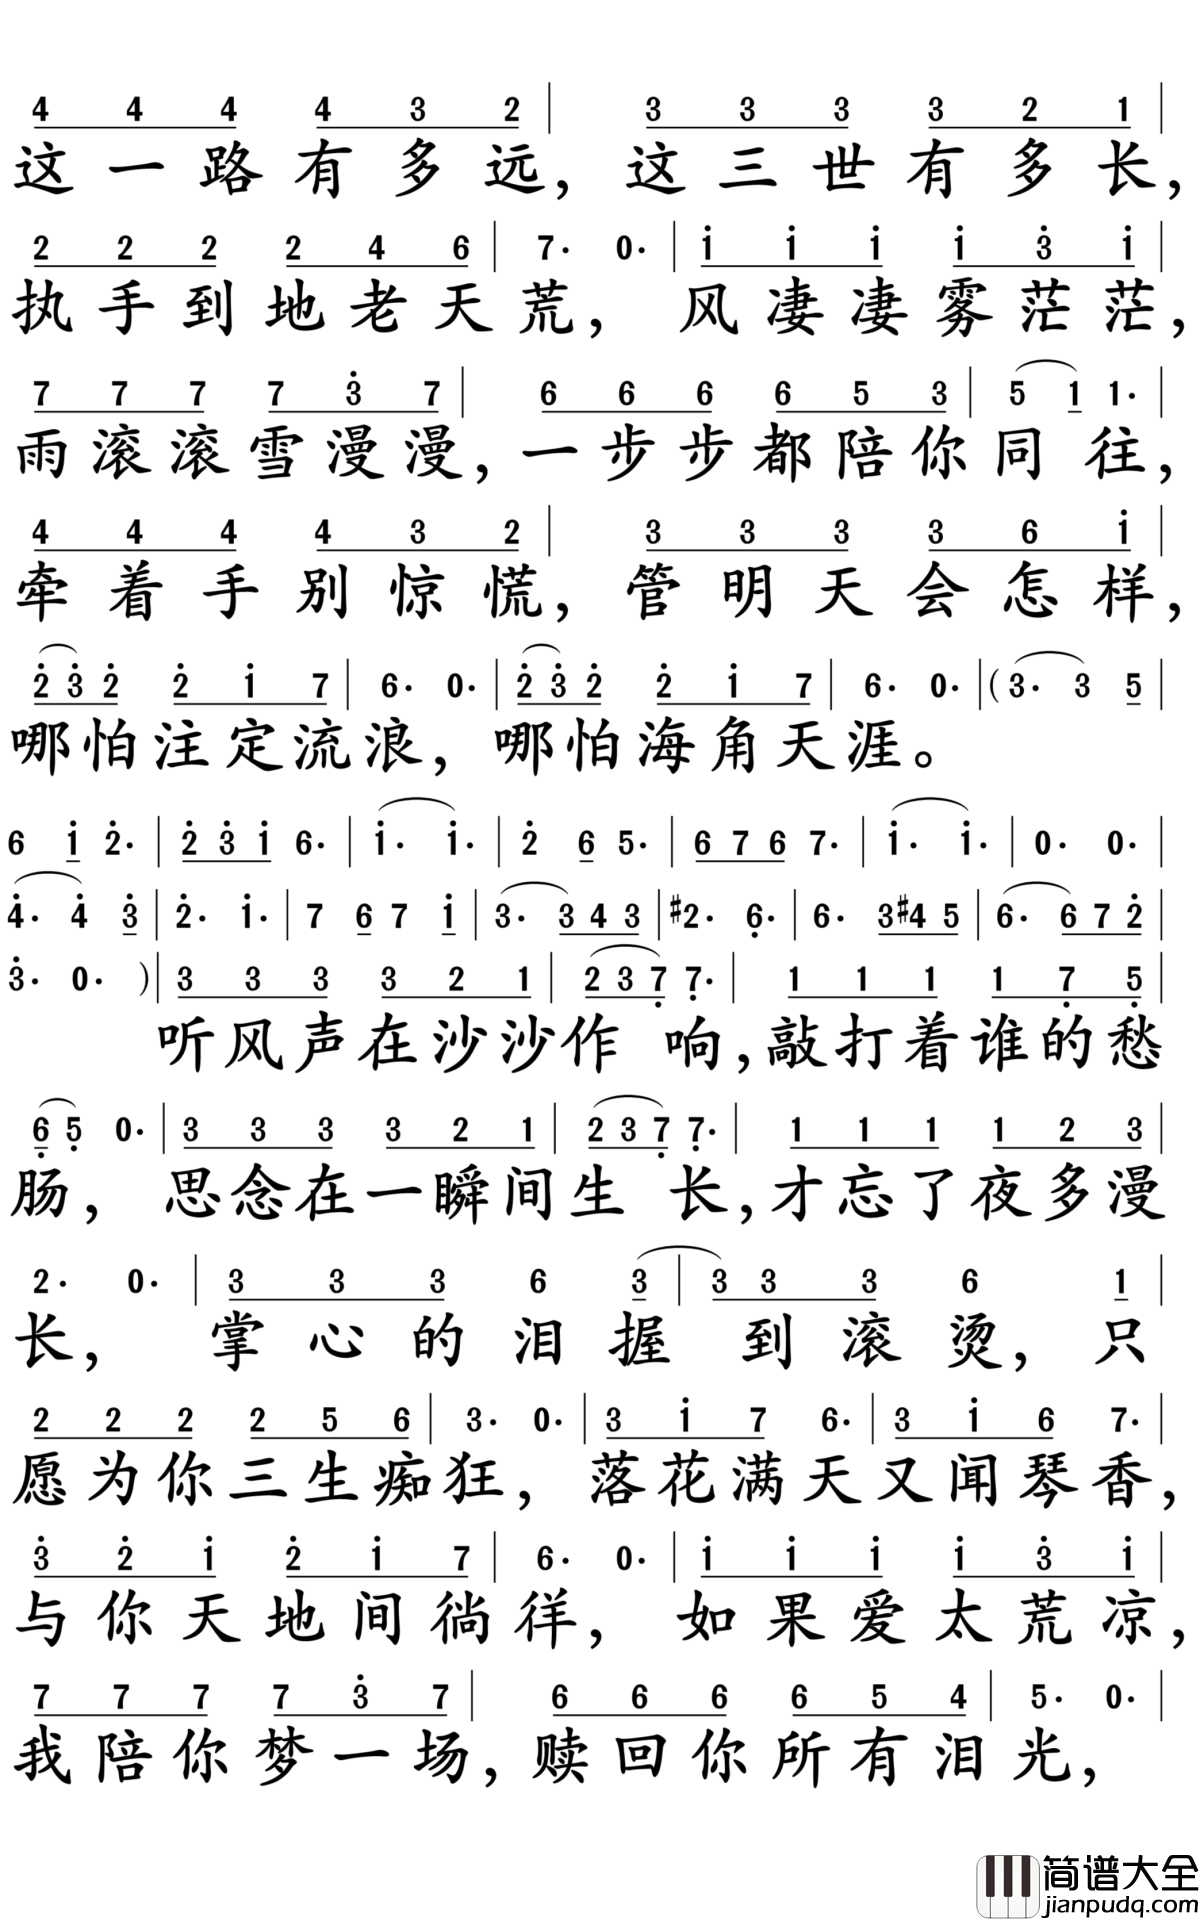 4 4 4 4 3 2 | 3 3 3 3 2 1 |
这一路有多远，这三世有多长，
2 2 2 2 4 6 | 7· 0· | i i i i 3̇ i |
执手到地老天荒，风凄凄雾茫茫，
7 7 7 7 3̇ 7 | 6 6 6 6 5 3 | 5 1 1· |
雨滚滚雪漫漫，一步步都陪你同往，
4 4 4 4 3 2 | 3 3 3 3 6 i |
牵着手别惊慌，管明天会怎样，
2̇ 3̇ 2̇ 2̇ i 7 | 6· 0· | 2̇ 3̇ 2̇ 2̇ i 7 | 6· 0· | (3· 3 5 |
哪怕注定流浪，哪怕海角天涯。
6 i 2̇· | 2̇ 3̇ i 6· | i· i· | 2̇ 6 5· | 6 7 6 7· | i· i· | 0· 0· |
4̇· 4̇ 3̇ | 2̇· i· | 7 6 7 i | 3· 3 4 3 | #2· 6̣· | 6· 3 #4 5 | 6· 6 7 2̇ |
3̇· 0· ) | 3 3 3 3 2 1 | 2 3 7̣ 7̣· | 1 1 1 1 7̣ 5̣ |
听风声在沙沙作响，敲打着谁的愁
6̣ 5̣ 0· | 3 3 3 3 2 1 | 2 3 7̣ 7̣· | 1 1 1 1 2 3 |
肠，思念在一瞬间生长，才忘了夜多漫
2· 0· | 3 3 3 6 3 | 3 3 3 6 1 |
长，掌心的泪握到滚烫，只
2 2 2 2 5 6 | 3· 0· | 3 i 7 6· | 3 i 6 7· |
愿为你三生痴狂，落花满天又闻琴香，
3̇ 2̇ i 2̇ i 7 | 6· 0· | i i i i 3̇ i |
与你天地间徜徉，如果爱太荒凉，
7 7 7 7 3̇ 7 | 6 6 6 6 5 4 | 5· 0· |
我陪你梦一场，赎回你所有泪光，
简谱大全
jianpudq.com